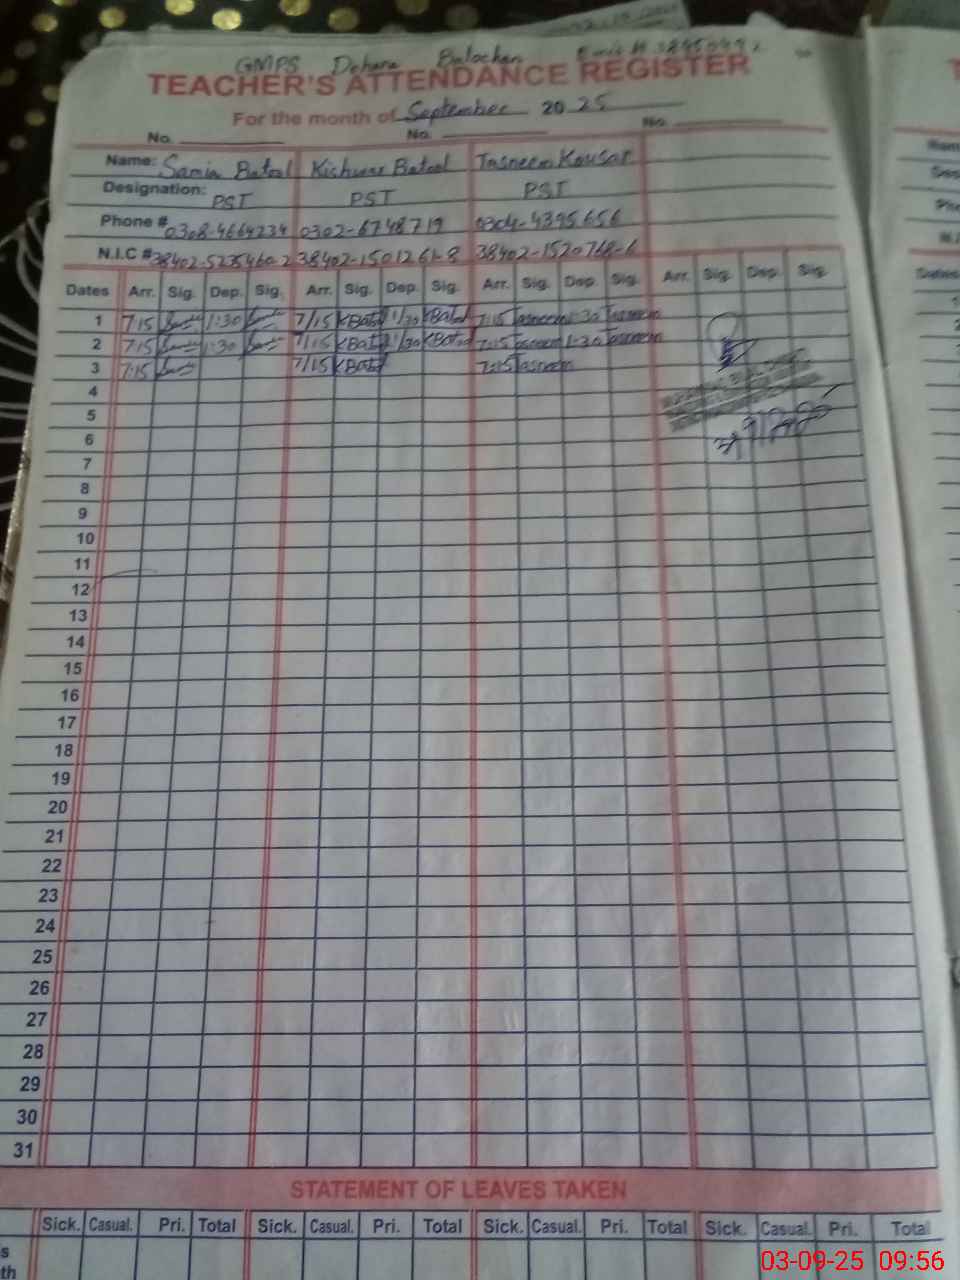 GMPS Dohara Balochan
TEACHER'S ATTENDANCE REGISTER
For the month of September 2025
No. No. No.
Name: Samia Batool Kishwar Batool Tasneem Kousar
Designation: PST PST PST
Phone # 0308-4664234 0302-6748719 0304-4395656
N.I.C # 38402-5235460-2 38402-1501261-8 38402-1520768-6
Dates Arr. Sig. Dep. Sig. Arr. Sig. Dep. Sig. Arr. Sig. Dep. Sig. Arr. Sig. Dep. Sig.
1 7:15 1:30 7/15 KBatol 1/30 KBatol 7:15 Tasneem 1:30 Tasneem
2 7:15 1:30 7/15 KBatol 1/30 KBatol 7:15 Tasneem 1:30 Tasneem
3 7:15 7/15 KBatol 7:15 Tasneem
4
5
6
7
8
9
10
11
12
13
14
15
16
17
18
19
20
21
22
23
24
25
26
27
28
29
30
31
STATEMENT OF LEAVES TAKEN
Sick. Casual. Pri. Total Sick. Casual. Pri. Total Sick. Casual. Pri. Total Sick. Casual. Pri. Total
03-09-25 09:56